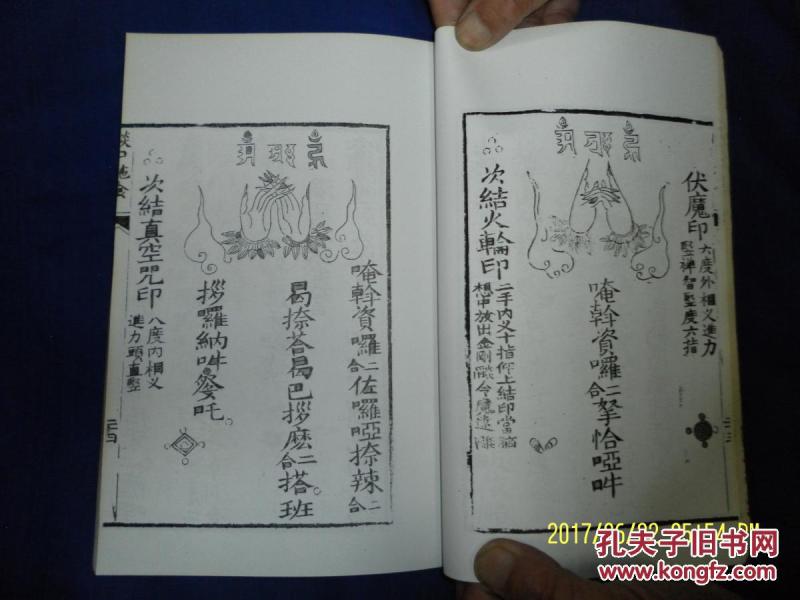 伏魔印
六度外相义進力
竪禅智竪度六指
唵斡資囉二合拏恰啞吽
次結火輪印
二手内义十指仰上結印當胸
想中放出金剛燄令魔遠
唵斡資囉二合佐囉啞捺辣二合
曷捺荅曷巴拶麽二合搭班
拶囉納吽癹吒
次結真空咒印
八度内相义
進力頭直竪
2017/06/0
孔夫子旧书网
www.kongfz.com